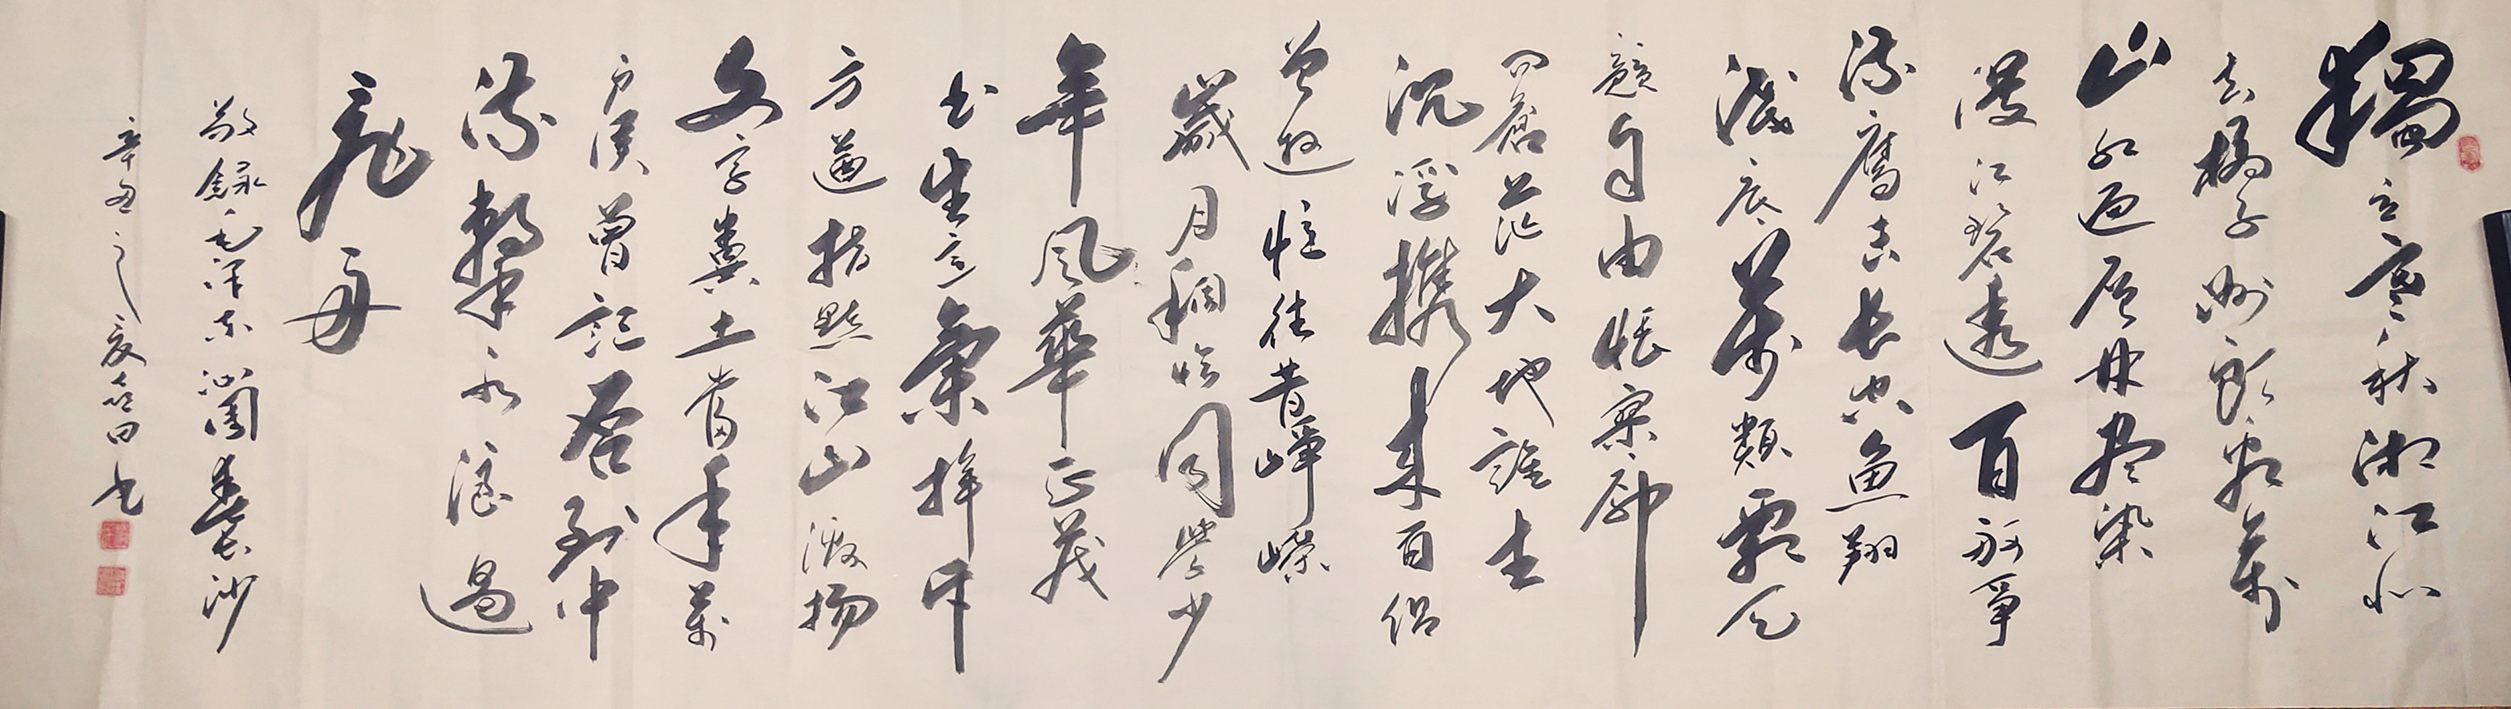 獨立寒秋湘江北
去橘子洲頭看萬
山紅遍層林盡染
漫江碧透百舸爭
流鷹擊長空魚翔
淺底萬類霜天
競自由悵寥廓
問蒼茫大地誰主
沉浮攜來百侶
曾遊憶往昔崢嶸
歲月稠恰同學少
年風華正茂
書生意氣揮斥
方遒指點江山激揚
文字糞土當年萬
戶侯曾記否到中
流擊水浪遏
飛舟
敬錄毛澤東沁園春長沙
辛丑之夏書